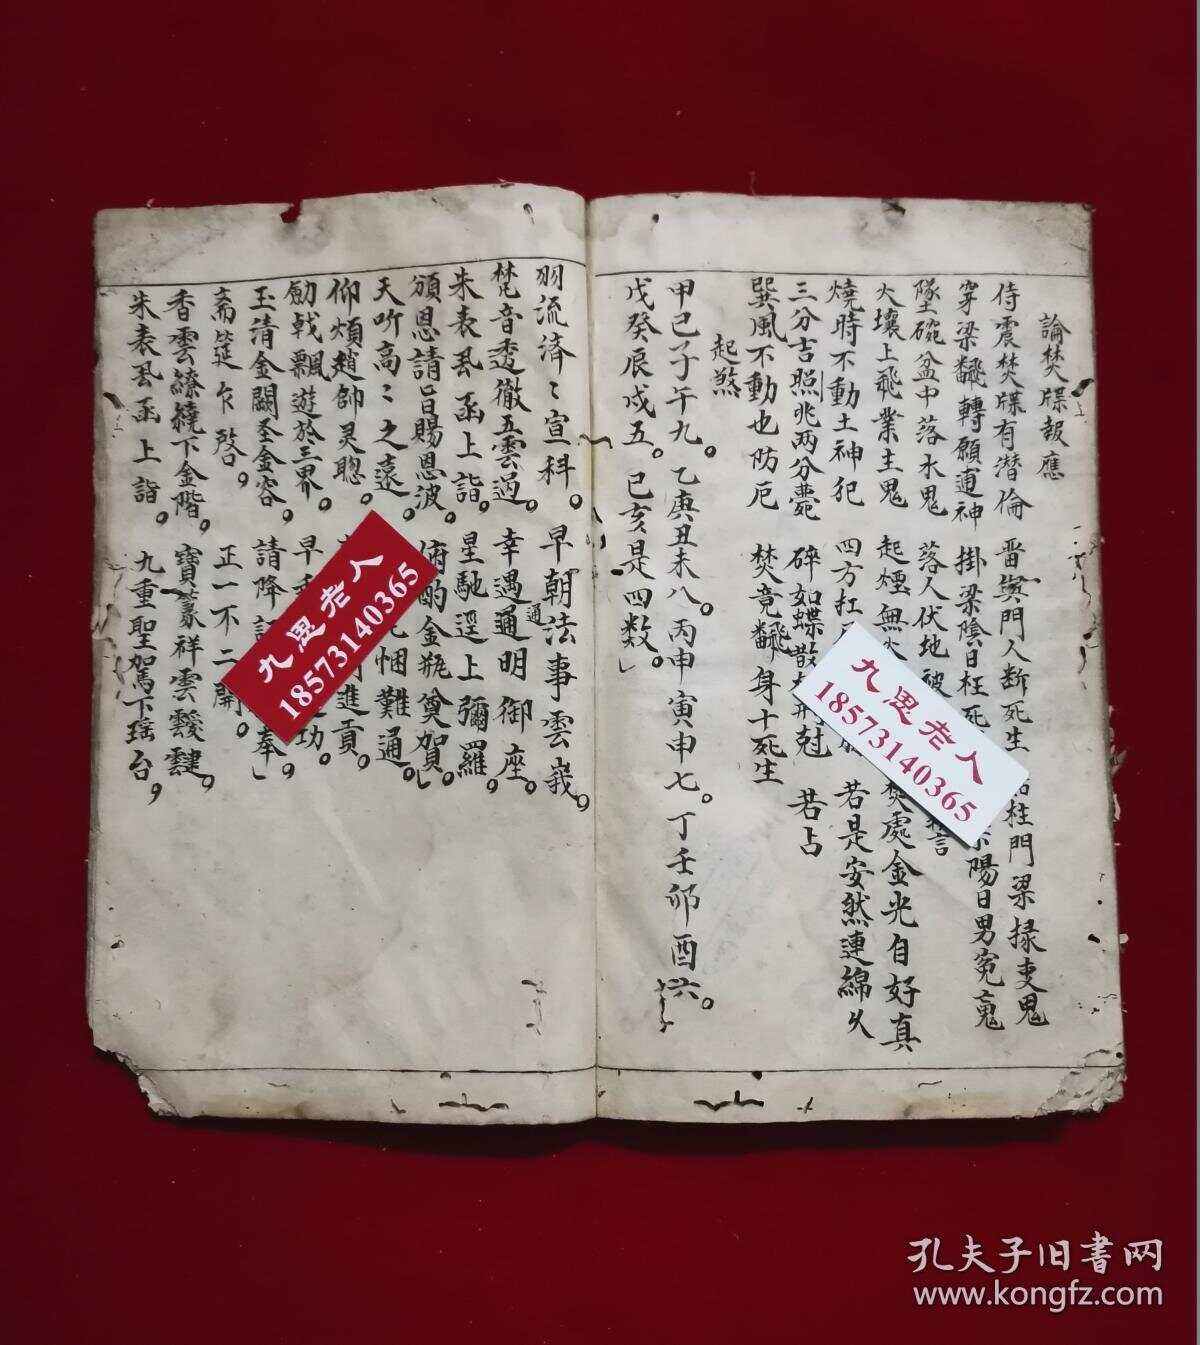 論焚牒報應
侍震焚牒有潜倫 雷 門人断死生 柱門梁 吏鬼
穿梁飜轉願逥神 掛梁陰日枉死 陽日男冤鬼
墜碗盆中落水鬼 落人伏地 言
火壞上飛業主鬼 起煙無火 焚處金光自好真
燒時不動土神犯 四方扛 若是安然連綿久
三分吉照兆两分斃 碎如蝶散 尅 若占
巽風不動也防厄 焚竟飜身十死生
起煞
甲己子午九。乙庚丑未八。丙申寅申七。丁壬卯酉六。
戊癸辰戌五。巳亥是四数。
羽流済〻宣科。早朝法事雲 。
梵音透徹五雲過。幸遇通明御座。
通
朱表丟函上詣。星馳逕上彌羅。
頒恩請旨賜恩波。俯酌金瓶奠賀。
天听高〻之遠。 悃難通。
仰煩趙帥灵聦。 進貢。
勔戟飄遊於三界。早 功。
玉清金闕圣金容。請降 奉
齋筵乍啓。正一不二開。
香雲繚繞下金階。寶篆祥雲靉靆。
朱表丟函上詣。九重聖駕下瑶台。
九思老人
18573140365
九思老人
18573140365
孔夫子旧書网
www.kongfz.com